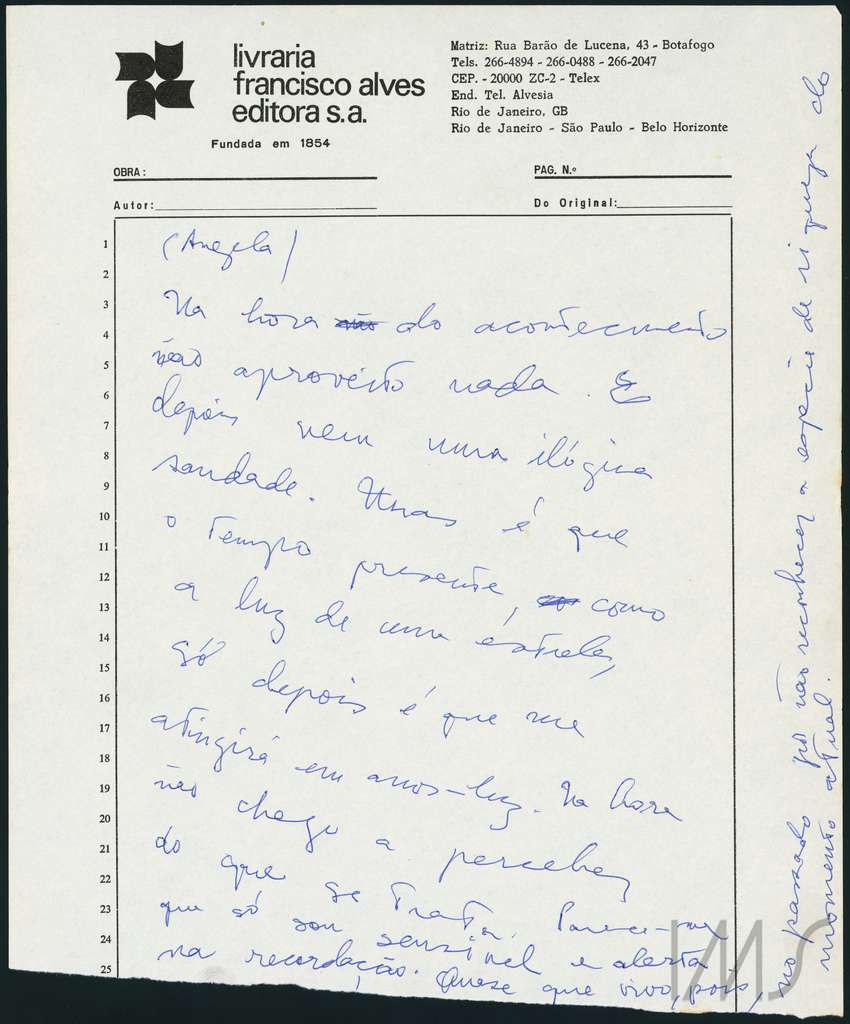 livraria
francisco alves
editora s.a.
Fundada em 1854
Matriz: Rua Barão de Lucena, 43 - Botafogo
Tels. 266-4894 - 266-0488 - 266-2047
CEP. - 20000 ZC-2 - Telex
End. Tel. Alvesia
Rio de Janeiro, GB
Rio de Janeiro - São Paulo - Belo Horizonte
OBRA:
PAG. N.º
Autor:
Do Original:
1
2
3
4
5
6
7
8
9
10
11
12
13
14
15
16
17
18
19
20
21
22
23
24
25
(Angela)
Na hora do acontecimento
não aproveito nada. E
depois vem uma ilógica
saudade. Mas é que
o tempo presente, como
a luz de uma estrela,
só depois é que me
atingirá em anos-luz. Na hora
não chego a perceber
do que se trata. Parece-me
que só sou sensível e alerta
na recordação. Quase que vivo, pois,
no passado por não reconhecer a espécie de riqueza do
momento atual.
IMS